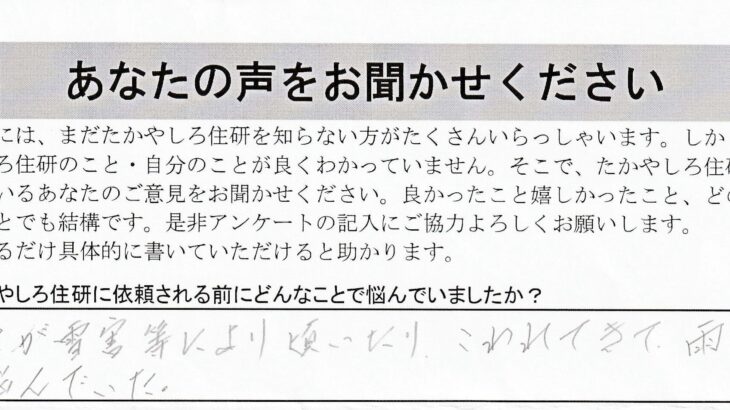 あなたの声をお聞かせください
には、まだたかやしろ住研を知らない方がたくさんいらっしゃいます。しかし
ろ住研のこと・自分のことが良くわかっていません。そこで、たかやしろ住研
いるあなたのご意見をお聞かせください。良かったこと嬉しかったこと、どの
とでも結構です。是非アンケートの記入にご協力よろしくお願いします。
るだけ具体的に書いていただけると助かります。
やしろ住研に依頼される前にどんなことで悩んでいましたか？
が雪害等により傾いたり、こわれてきて、雨
悩んでいた。